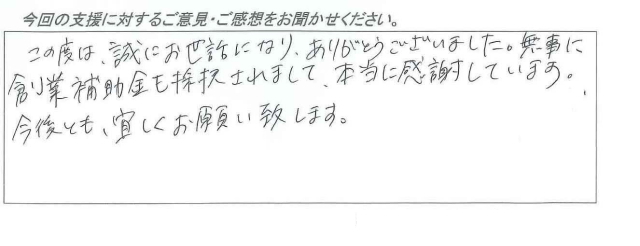 今回の支援に対するご意見・ご感想をお聞かせください。
この度は、誠にお世話になり、ありがとうございました。無事に
創業補助金も採択されまして、本当に感謝しています。
今後とも、宜しくお願い致します。